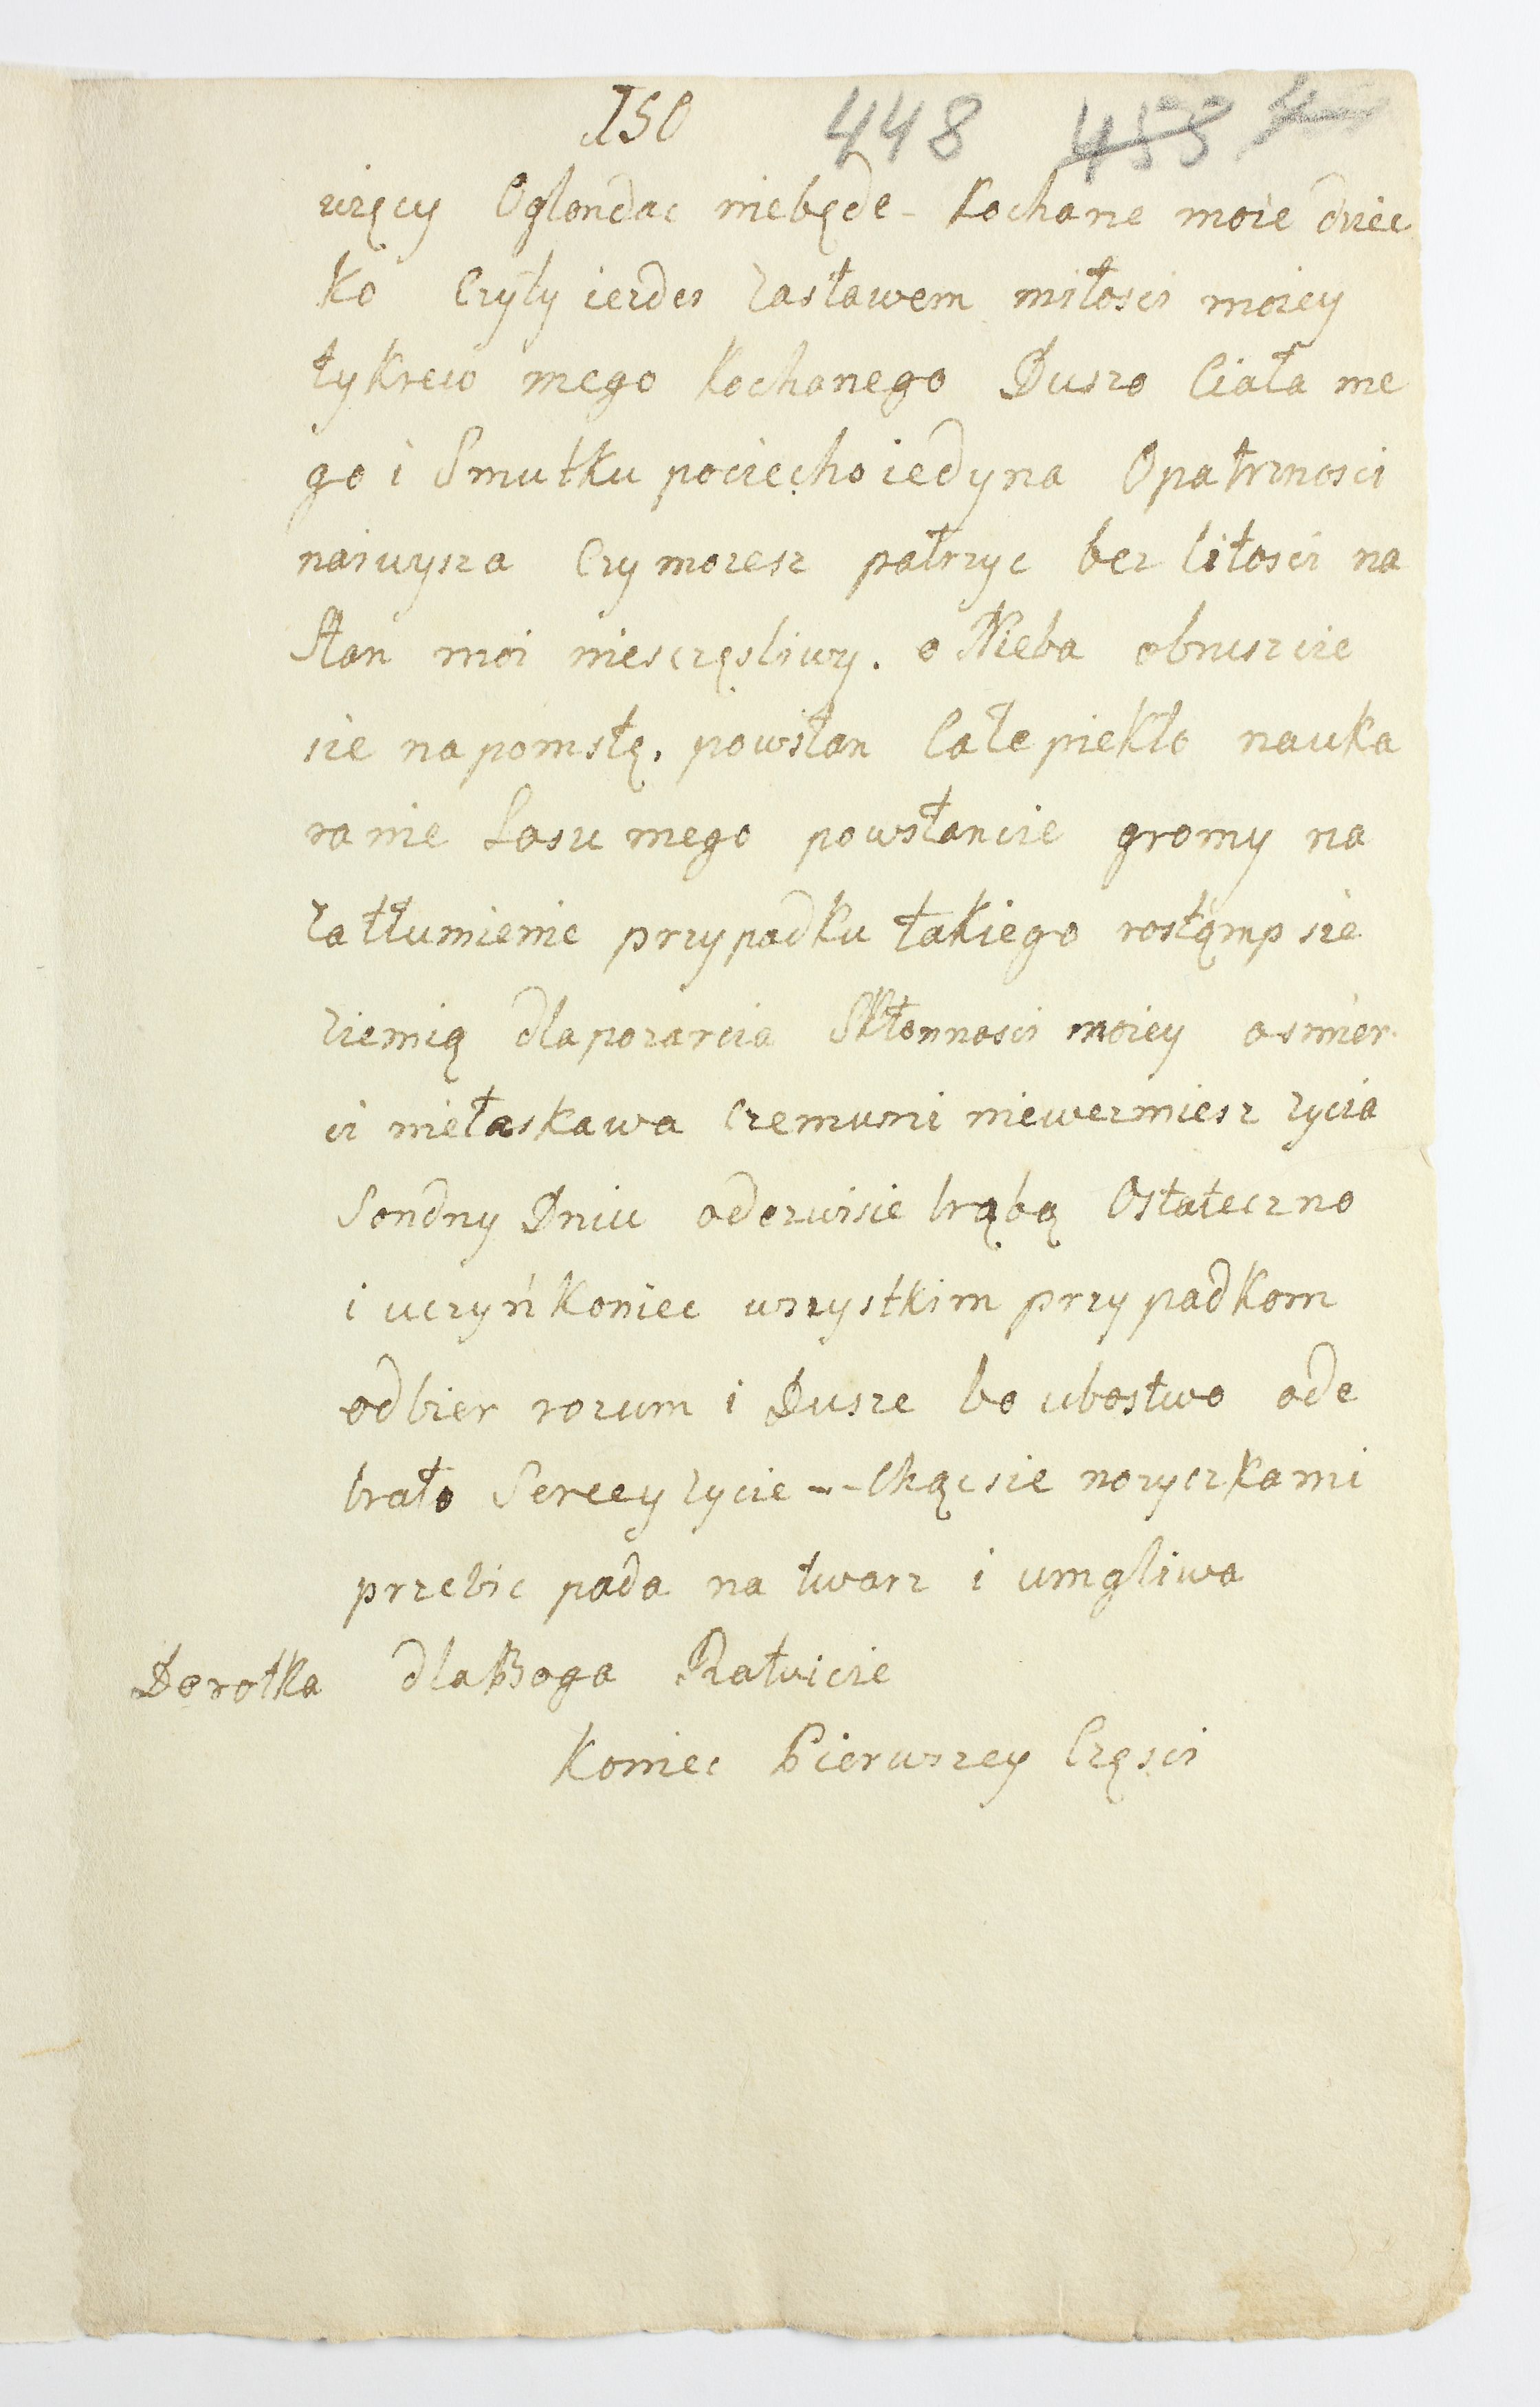 150 448 453
więcy Oglondac niebęde - kochane moie dziec
ko Czyty iezdes zastawem miłosci moiey
tykrew mego kochanego Duszo Ciała me
go i Smutku pociecho iedyna Opatrznosci
naiwysza Czy mozesz patrzyc bez litosci na
Stan moi niesczęsliwy. o Nieba obruszcie
sie na pomstę, powstan Całe piekło nauka
ranie Losu mego powstancie gromy na
zatłumienie przypadku takiego rostęmp sie
ziemię dla pozarcia Skłonnosci moiey o smier
ci niełaskawa czemumi niewezmiesz zycia
Sondny Dniu oderwisie trąbą Ostateczno
i uczyń koniec wszystkim przypadkom
odbier rozum i Dusze bo ubostwo ode
brało Sercey zycie -- Chącsie nozyczkami
przebic pada na twarz i umgliwa
Dorotka dla Boga Ratuicie
Koniec Pierwszey Częsci